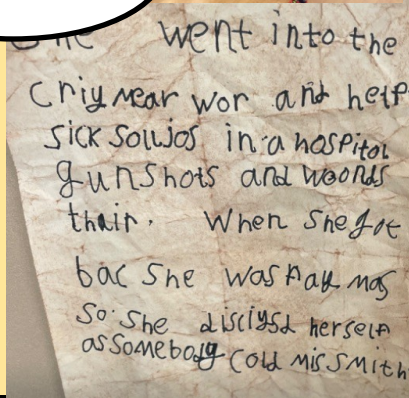 She went into the
Criymear wor and help
sick soujos in a hospitol
gunshots and woonds
thair. When she got
bac she was Fay mas
So she disciysd herself
as somebody cold mis smith